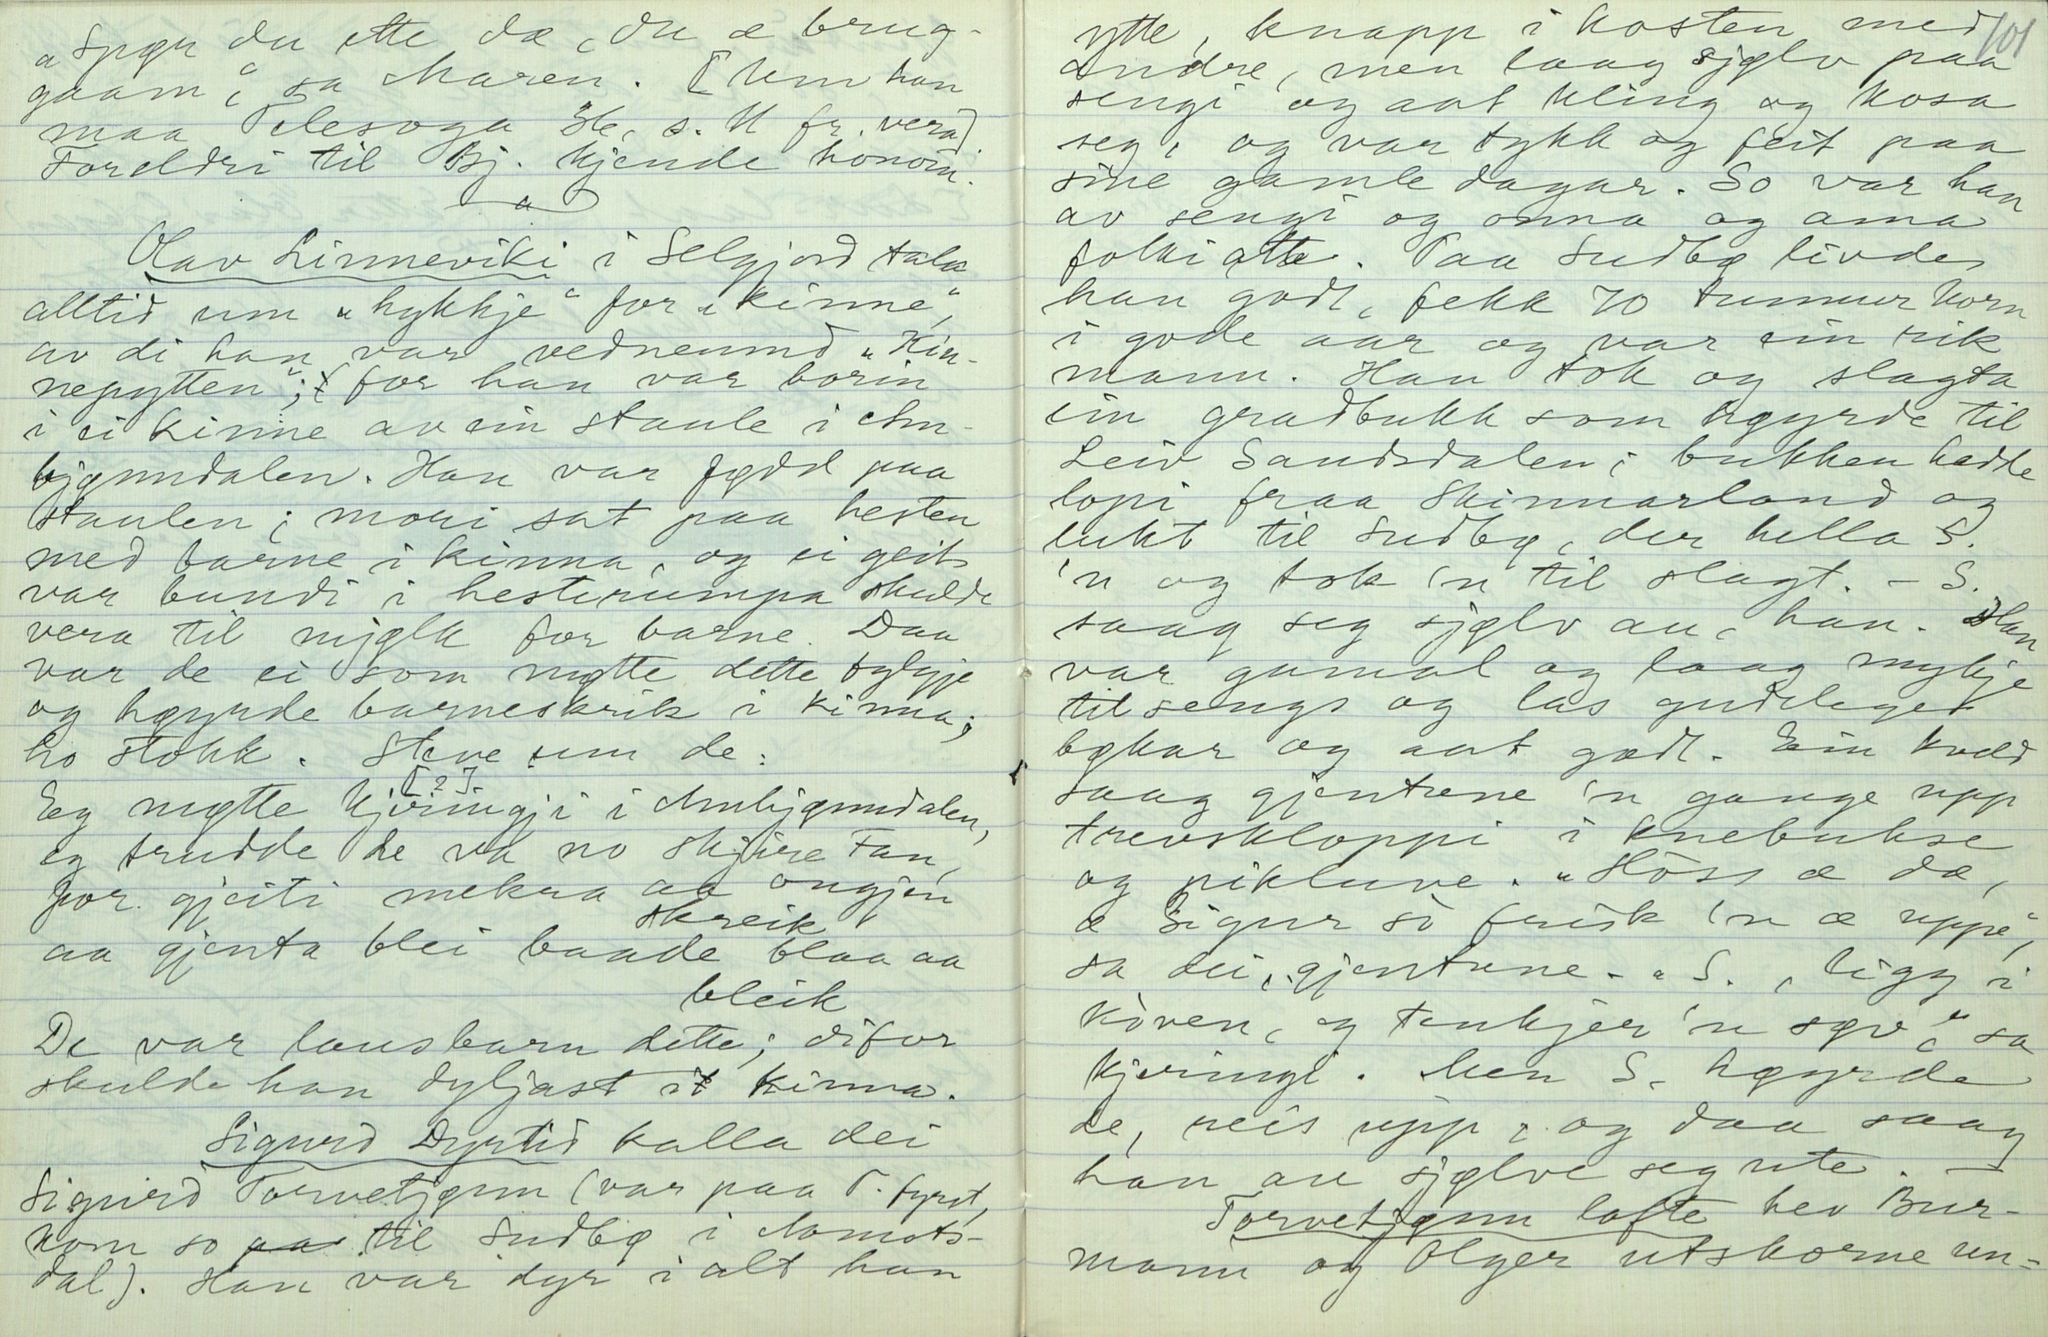 "Spør du ette dæ, du æ brug-
gaam", sa Maren. [Um han
maa Telesoga 36, s. 11 fr. vera]
Foreldri til Bj. kjende honom.
Olav Linneviki i Selgjord tala
alltid um "hykkje" for "kinne",
av di han var vednemnd "Kin-
nepytten"; for han var borin
i ei kinne av ein staule i Am-
bjønndalen. Han var fødd paa
staulen; mori sat paa hesten
med barne i kinna, og ei geit
var bundi i hesterumpa skulde
vera til mjølk for barne. Daa
var de ei som møtte dette fylgje
og høyrde barneskrik i kinna;
ho stokk. Steve um de:
[?]
Eg møtte kjeringji i Ambjønndalen,
eg trudde de va no skjire Fan,
for gjeiti mekra aa ongjen
skreik
aa gjenta blei baade blaa aa
bleik
De var lausbarn dette; difor
skulde han dyljast i kinna.
Sigurd Dyrtid kalla dei
Sigurd Torvetjønn (var paa T. fyrst,
kom so til Sudbø i Aamots-
dal). Han var dyr i alt han
101
ytte, knapp i kosten med
andre, men laag sjølv paa
sengi og aat kling og kosa
seg, og var tykk og feit paa
sine gamle dagar. So var han
av sengi og onna og ama
folki atte. Paa Sudbø livde
han godt, fekk 70 tunnur korn
i gode aar og var ein rik
mann. Han tok og slagta
ein gradbukk som høyrde til
Leiv Sandsdalen; bukken hadde
lopi fraa Skinnarland og
lukt til Sudbø, der hella S.
'n og tok 'n til slagt. - S.
saag seg sjølv au, han. Han
var gamal og laag mykje
tilsengs og las gudelege
bøkar og aat godt. Ein kveld
saag gjentene 'n gange upp
trevskloppi i knebukse
og pikluve. "Hòss æ dæ,
æ Sigur sò frisk 'n æ uppe",
sa dei, gjentune. - "S., ligg i
kòven, og tenkjer 'n søv", sa
kjeringi. Men S. høyrde
de, reis upp, og daa saag
han au sjølve seg ute. -
Torvetjønn lofte hev Bur-
mann og Olger utskorne un-